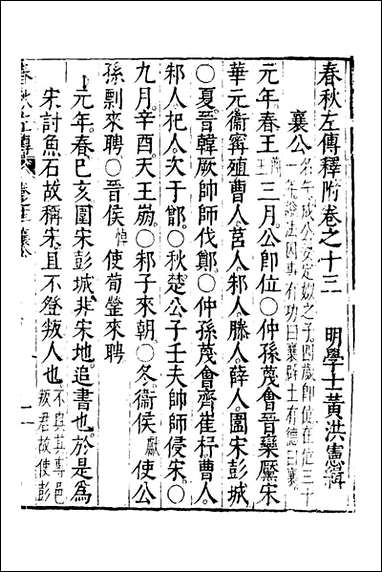 春秋左傳釋附卷之十三
明學士黃洪憲輯
襄公 名午成公妾定姒之子四歲即位在位三十一年謚法因事有功曰襄辟土有德曰襄
元年春王正月公即位○仲孫蔑會晉欒黶宋
華元衞甯殖曹人莒人邾人滕人薛人圍宋彭城
○夏晉韓厥帥師伐鄭○仲孫蔑會齊崔杼曹人
邾人杞人次于鄫○秋楚公子壬夫帥師侵宋○
九月辛酉天王崩○邾子來朝○冬衞侯獻使公
孫剽來聘○晉侯悼使荀罃來聘
元年春己亥圍宋彭城非宋地追書也於是爲
宋討魚石故稱宋且不登叛人也 不與其專邑叛君故使彭